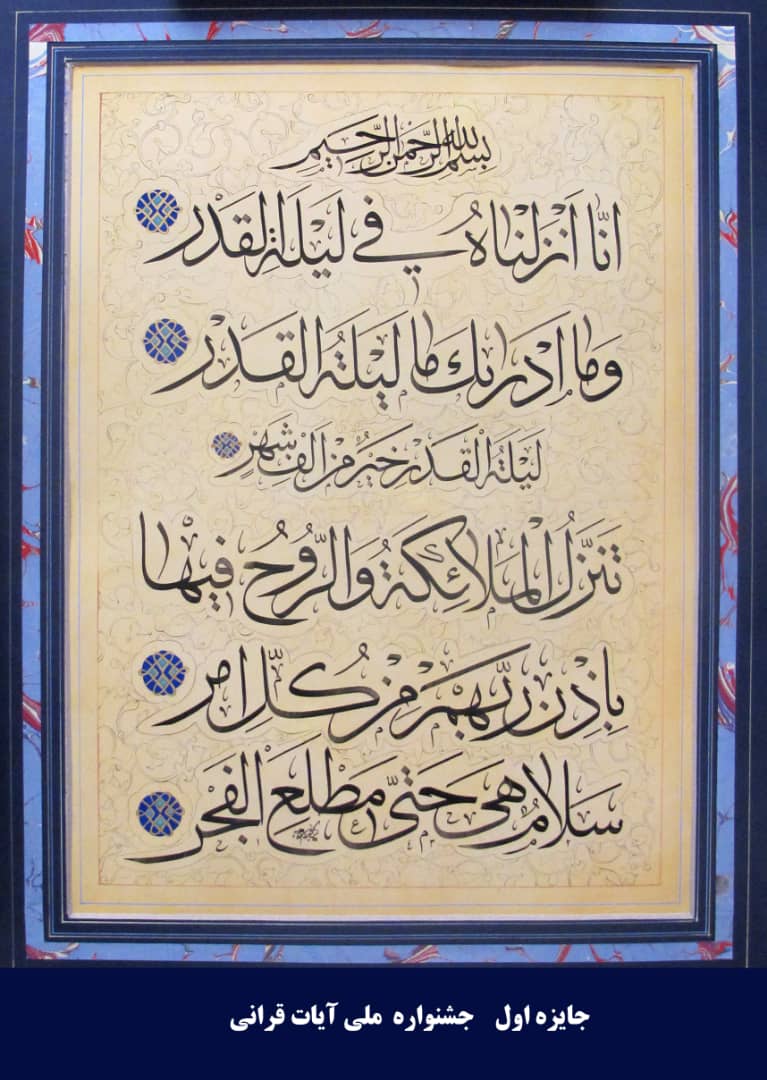 بسم الله الرحمن الرحیم
انّا اَنزَلناهُ في لَیلَةِ القَدْر
وَما اَدریك ما لَیلَةُ القَدْر
لَیلَةُ القَدْرِ خَیرٌ مِن اَلفِ شَهرٍ
تَنَزَّلُ المَلائِکَةُ وَالرّوُحُ فیها
بِاِذنِ رَبِّهِم مِن کُلِّ امر
سَلامٌ هیَ حَتیّ مَطلَعِ الفَجْر
جایزه اول جشنواره ملی آیات قرانی